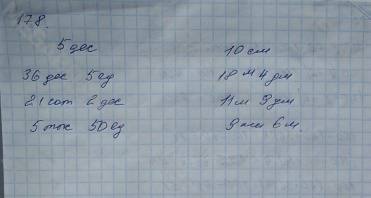 178.
5 дес 10 см
36 дес 5 ед 18 м 4 дм
21 сот 2 дес 11 м 9 дм
5 тыс 50 ед 9 км 6 м.